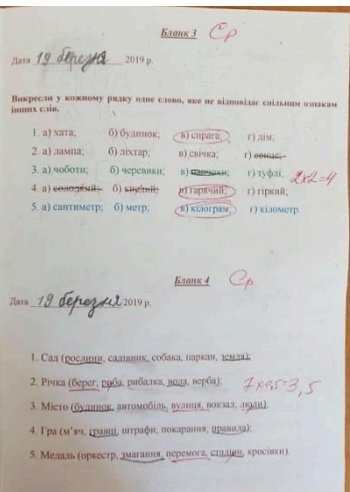 Бланк 3 Ср
Дата 19 березня 2019 р.
Викресли у кожному рядку одне слово, яке не відповідає спільним ознакам
інших слів.
1. а) хата; б) будинок; в) справа; г) дім;
2. а) лампа; б) ліхтар; в) свічка; г) сонце;
3. а) чоботи; б) черевики; в) г) туфлі; 2x2=4
4. а) солодкий; б) кислий; в) гарячий; г) гіркий;
5. а) сантиметр; б) метр; в) кілограм; г) кілометр.
Бланк 4 Ср
Дата 19 березня 2019 р.
1. Сад (рослини, садівник, собака, паркан, земля);
2. Річка (берег, риба, рибалка, вода, верба); 7x0,5=3,5
3. Місто (будинок, автомобіль, вулиця, вокзал, люди).
4. Гра (м'яч, гравці, штрафи, покарання, правила);
5. Медаль (оркестр, змагання, перемога, стадіон, кросівки).